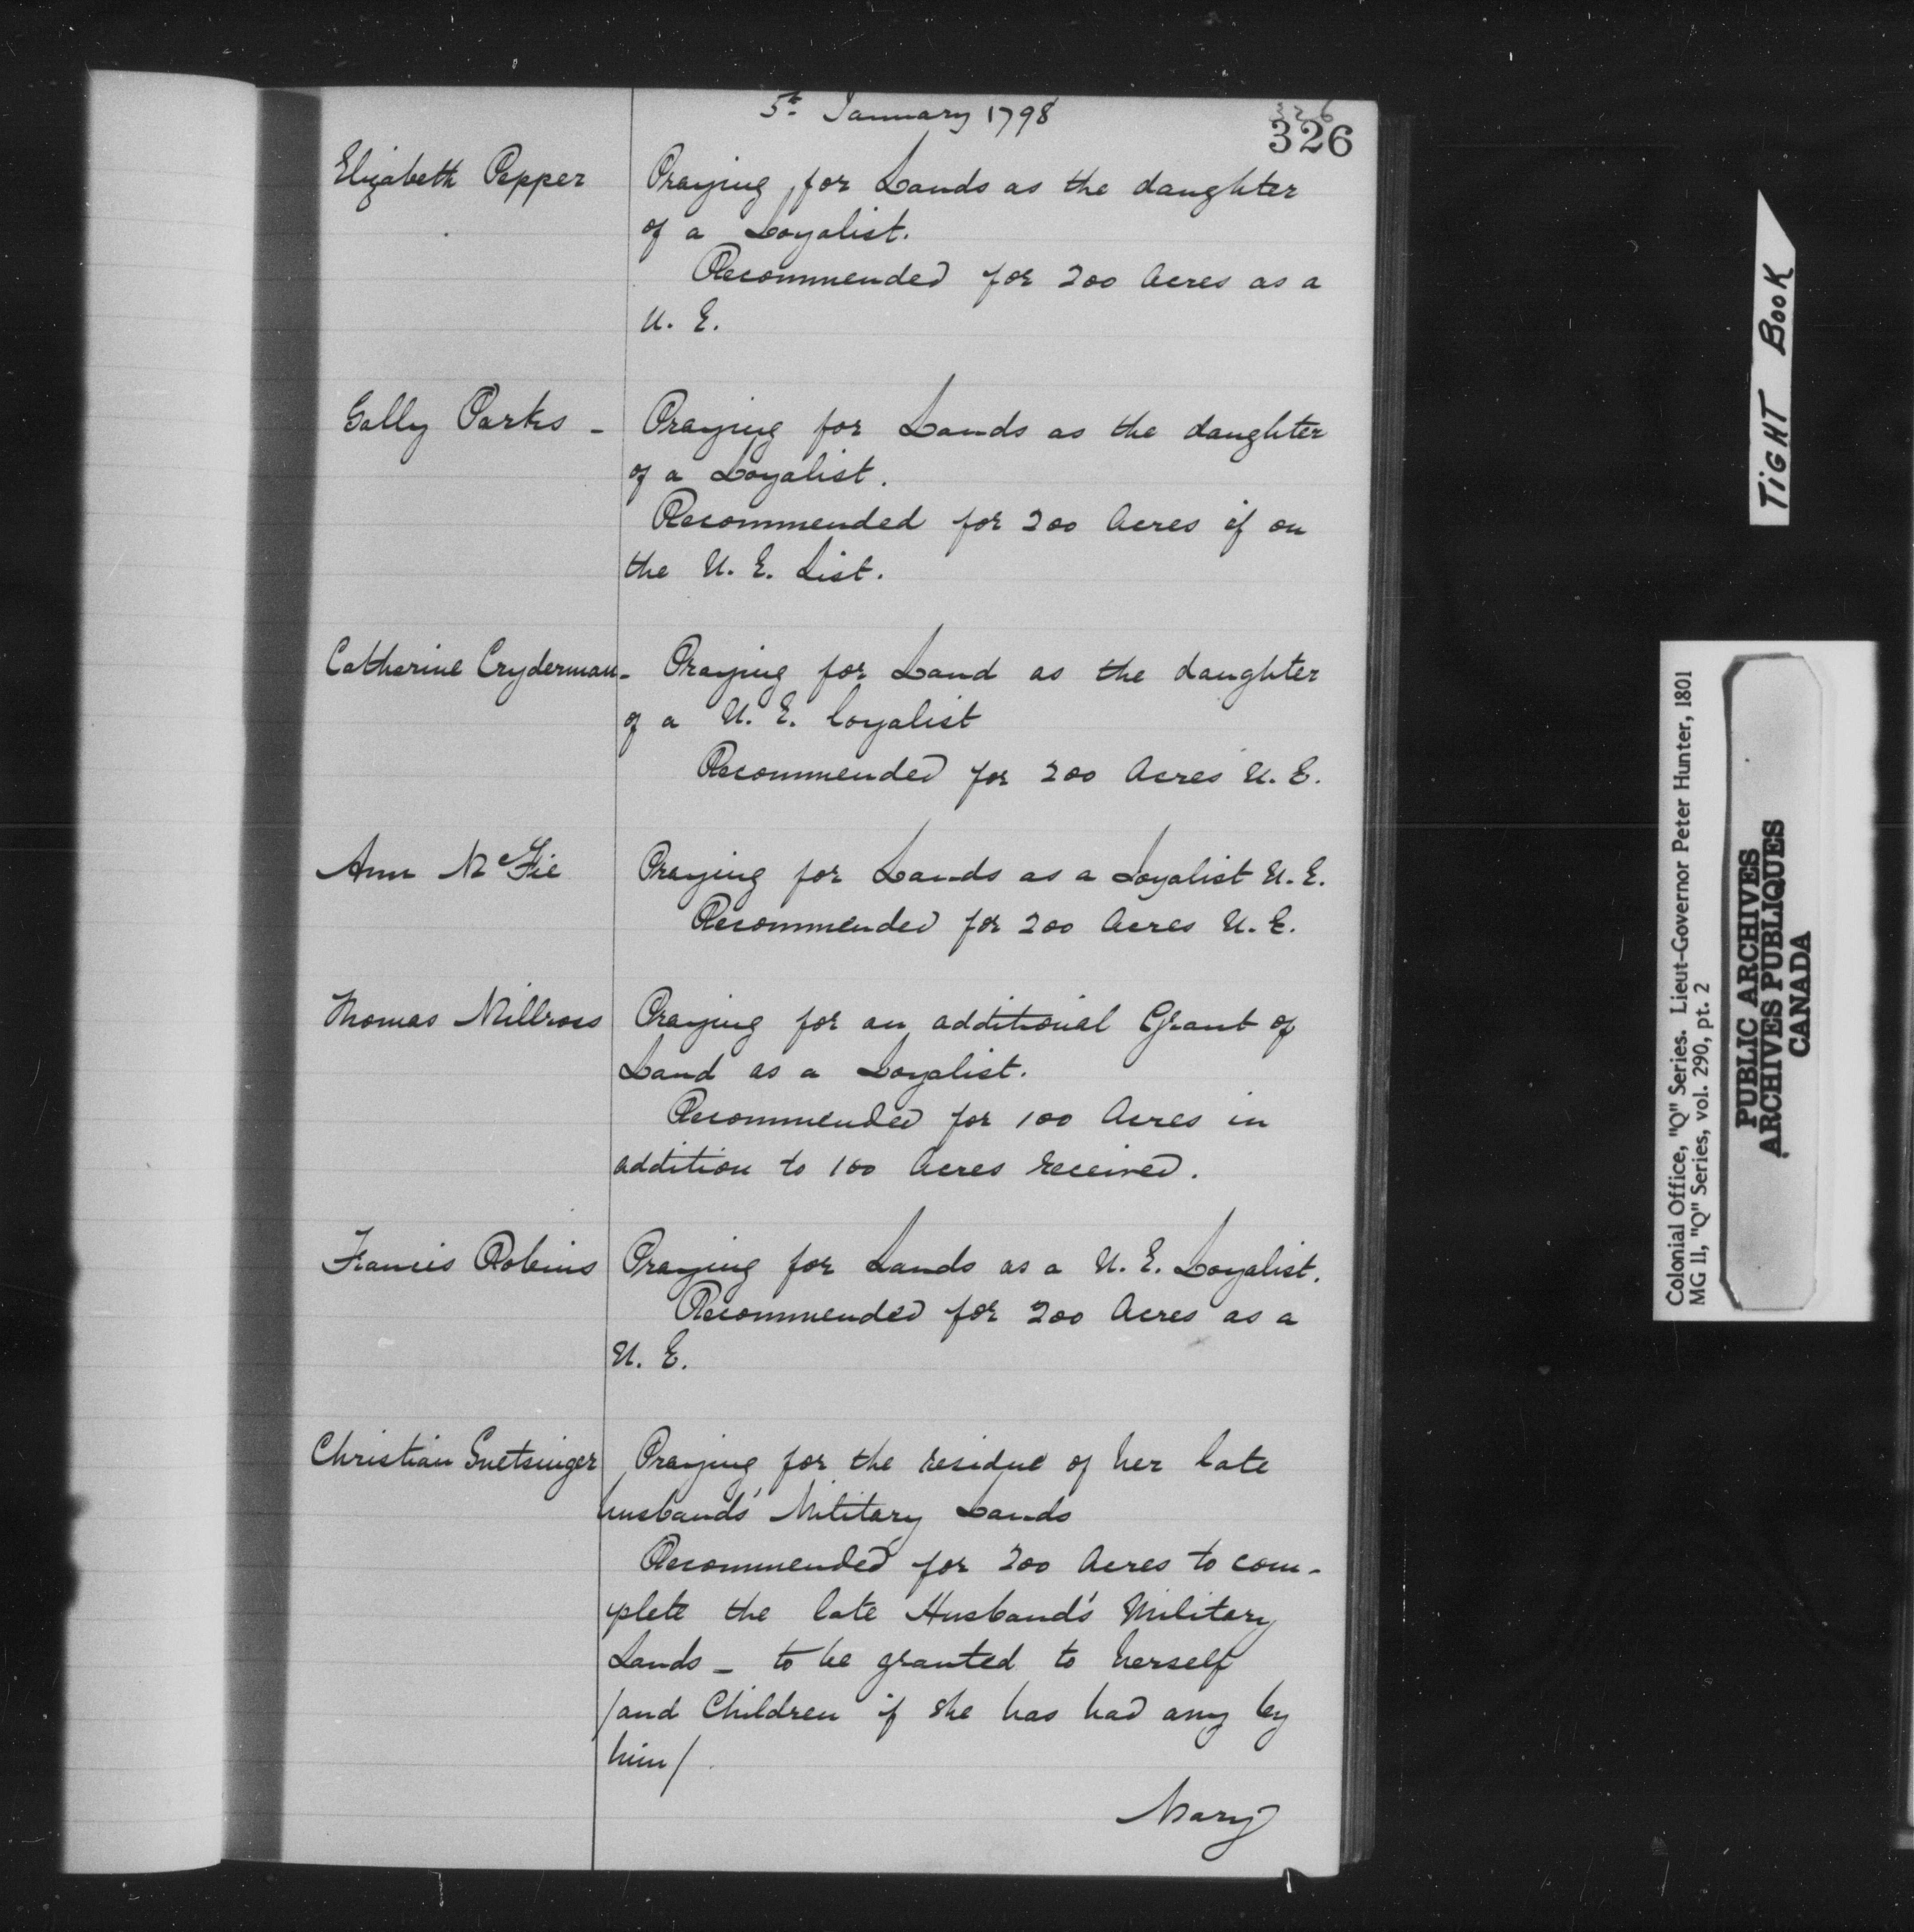 5th January 1798
326
326
Elizabeth Pepper
Praying for Lands as the daughter
of a Loyalist.
Recommended for 200 Acres as a
U. E.
Sally Parks -
Praying for Lands as the daughter
of a Loyalist.
Recommended for 200 Acres if on
the U. E. List.
Catharine Cryderman -
Praying for Land as the daughter
of a U. E. loyalist
Recommended for 200 Acres U. E.
Ann McFie
Praying for Lands as a Loyalist U. E.
Recommended for 200 Acres U. E.
Thomas Millross
Praying for an additional Grant of
Land as a Loyalist.
Recommended for 100 Acres in
addition to 100 Acres received.
Francis Robins
Praying for Lands as a U. E. Loyalist.
Recommended for 200 Acres as a
U. E.
Christian Snetsinger
Praying for the residue of her late
husbands' Military Lands
Recommended for 200 Acres to com-
plete the late Husband's Military
Lands - to be granted to herself
/and Children if she has had any by
him/.
Mary
TIGHT BOOK
Colonial Office, "Q" Series. Lieut-Governor Peter Hunter, 1801
MG 11, "Q" Series, vol. 290, pt. 2
PUBLIC ARCHIVES
ARCHIVES PUBLIQUES
CANADA